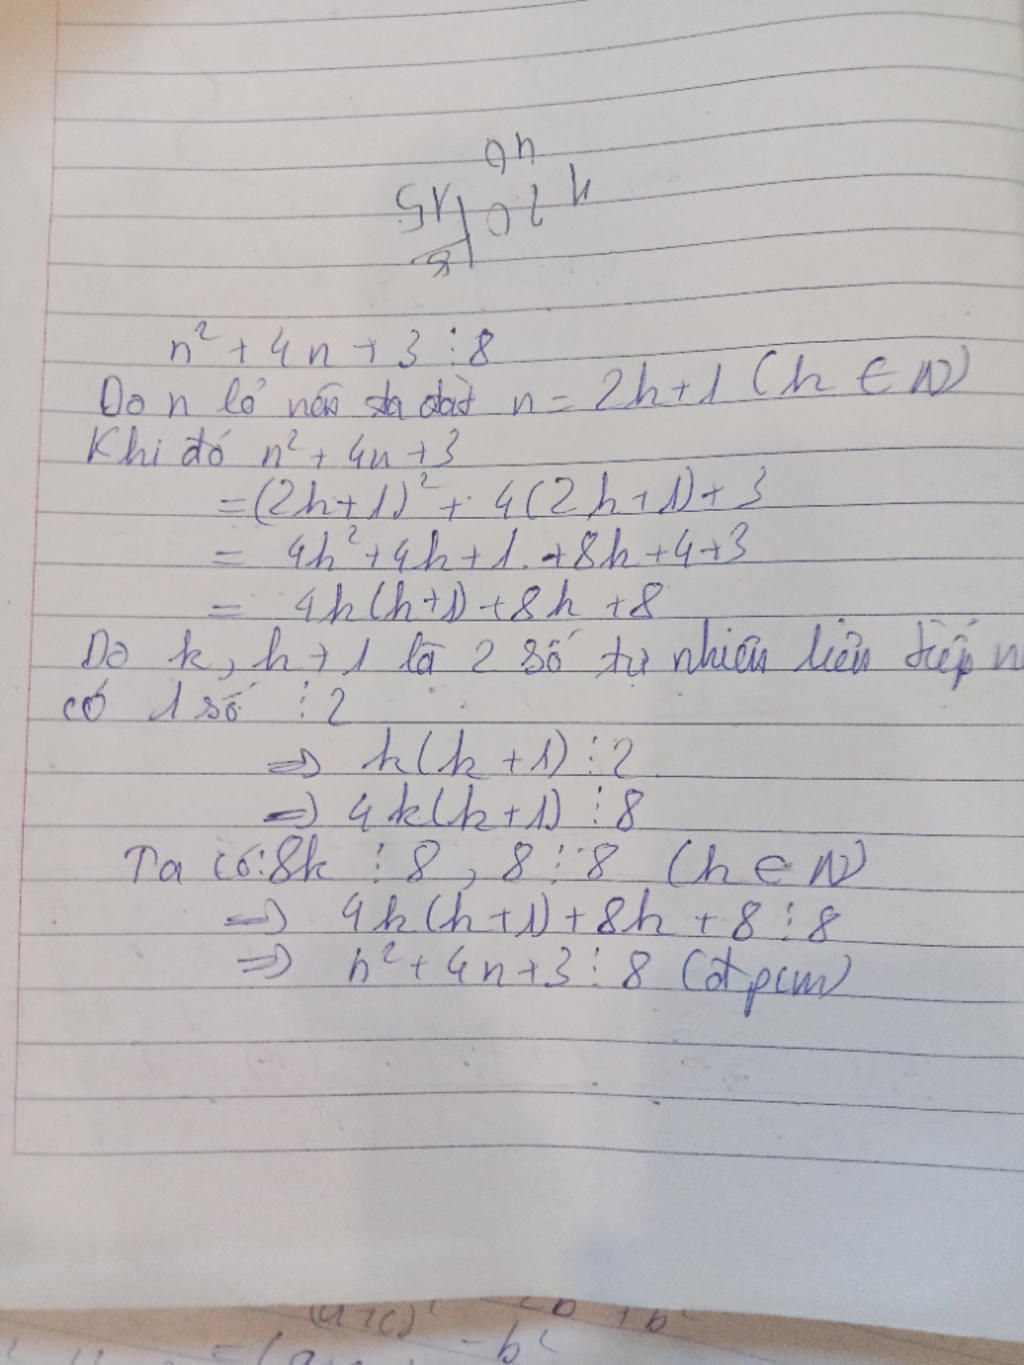 n² + 4n + 3 ⋮ 8
Do n lẻ nên ta đặt n = 2k+1 (k ∈ N)
Khi đó n² + 4n + 3
= (2k+1)² + 4(2k+1) + 3
= 4k² + 4k + 1 + 8k + 4 + 3
= 4k(k+1) + 8k + 8
Do k, k+1 là 2 số tự nhiên liên tiếp n
có 1 số ⋮ 2
⇒ k(k+1) ⋮ 2
⇒ 4k(k+1) ⋮ 8
Ta có: 8k ⋮ 8, 8 ⋮ 8 (k ∈ N)
⇒ 4k(k+1) + 8k + 8 ⋮ 8
⇒ n² + 4n + 3 ⋮ 8 (đpcm)
(a+c)² + b²
- b²